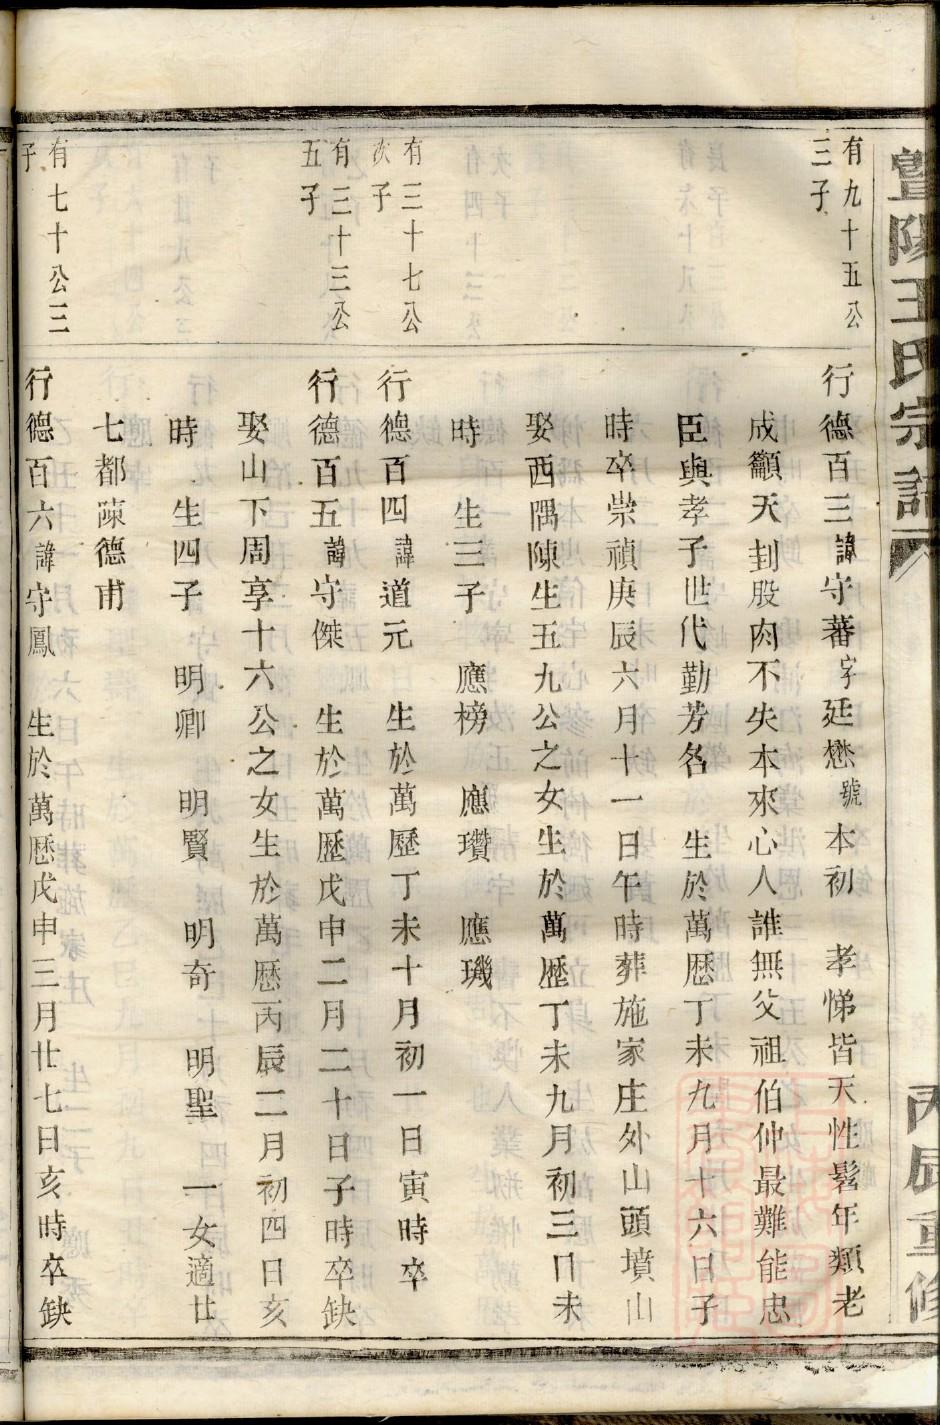 暨陽王氏宗譜
丙辰重修
有九十五公
三子
行德百三諱守蕃字廷懋號本初 孝悌皆天性髫年類老
成籲天刲股肉不失本來心人誰無父祖伯仲最難能忠
臣與孝子世代勤芳名 生於萬歷丁未九月十六日子
時卒崇禎庚辰六月十一日午時葬施家庄外山頭墳山
娶西隅陳生五九公之女生於萬歷丁未九月初三日未
時 生三子 應榜 應瓚 應璣
有三十七公
次子
行德百四諱道元 生於萬歷丁未十月初一日寅時卒
有三十三公
五子
行德百五諱守傑 生於萬歷戊申二月二十日子時卒缺
娶山下周享十六公之女生於萬歷丙辰二月初四日亥
時 生四子 明卿 明賢 明奇 明聖 一女適廿
七都陳德甫
有七十公三
子
行德百六諱守鳳 生於萬歷戊申三月廿七日亥時卒缺